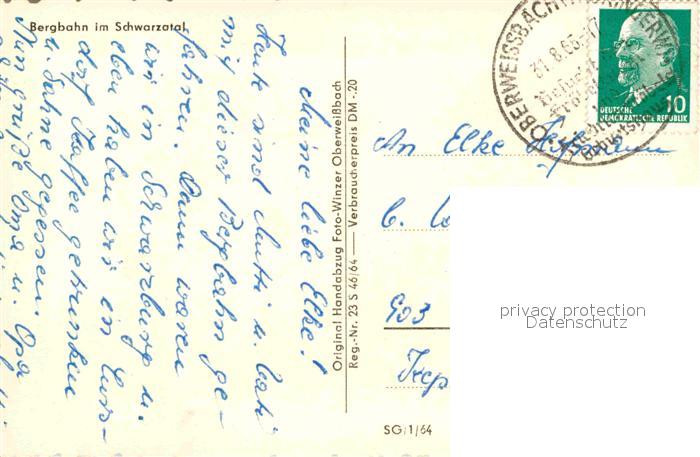 Bergbahn im Schwarzatal
Meine liebe Elke!
Heute sind Mutti u. Vati
mit dieser Bergbahn ge-
fahren. Dann waren
wir in Schwarzburg u.
eben haben wir in
dorf Kaffee getrunken
u. Sahne gegessen.
Nun grüße Oma u. Opa
Original Handabzug Foto-Winzer Oberweißbach
Reg.-Nr. 23 S 46/64 — Verbraucherpreis DM -.20
OBERWEISSBACH
31.8.65
DEUTSCHE
DEMOKRATISCHE REPUBLIK
10
An Elke
903
SG/1/64
privacy protection
Datenschutz